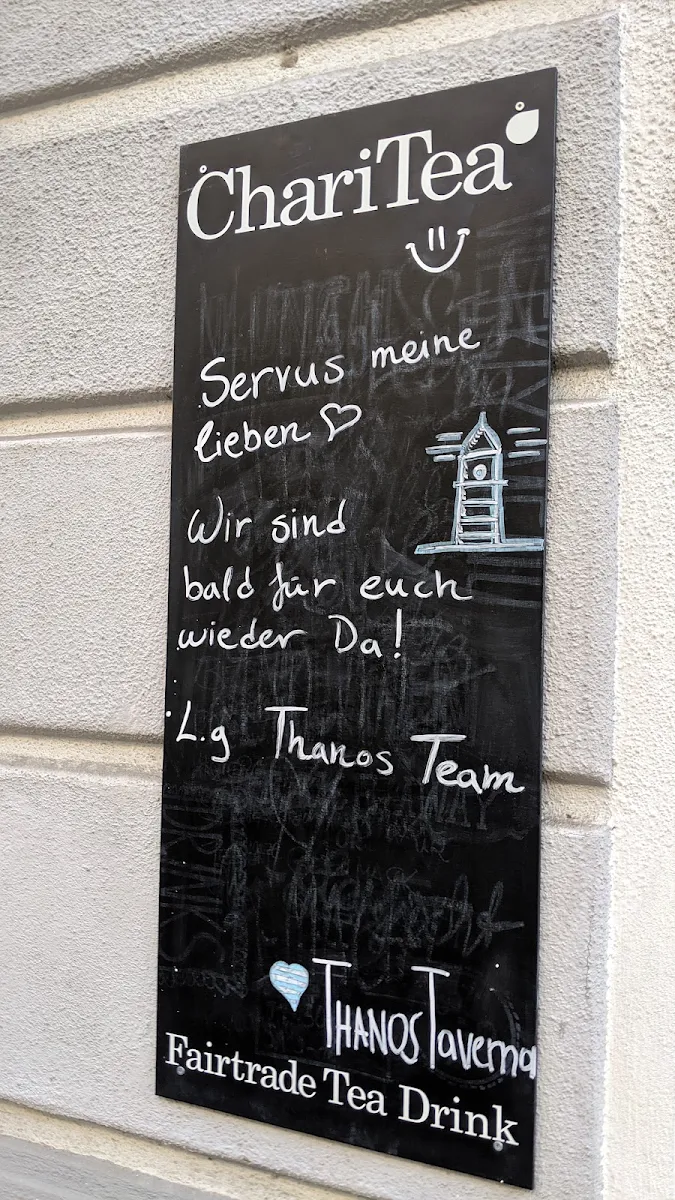 ChariTea
Servus meine
lieben ♡
Wir sind
bald für euch
wieder Da!
L.g Thanos Team
THANOS Taverna
Fairtrade Tea Drink